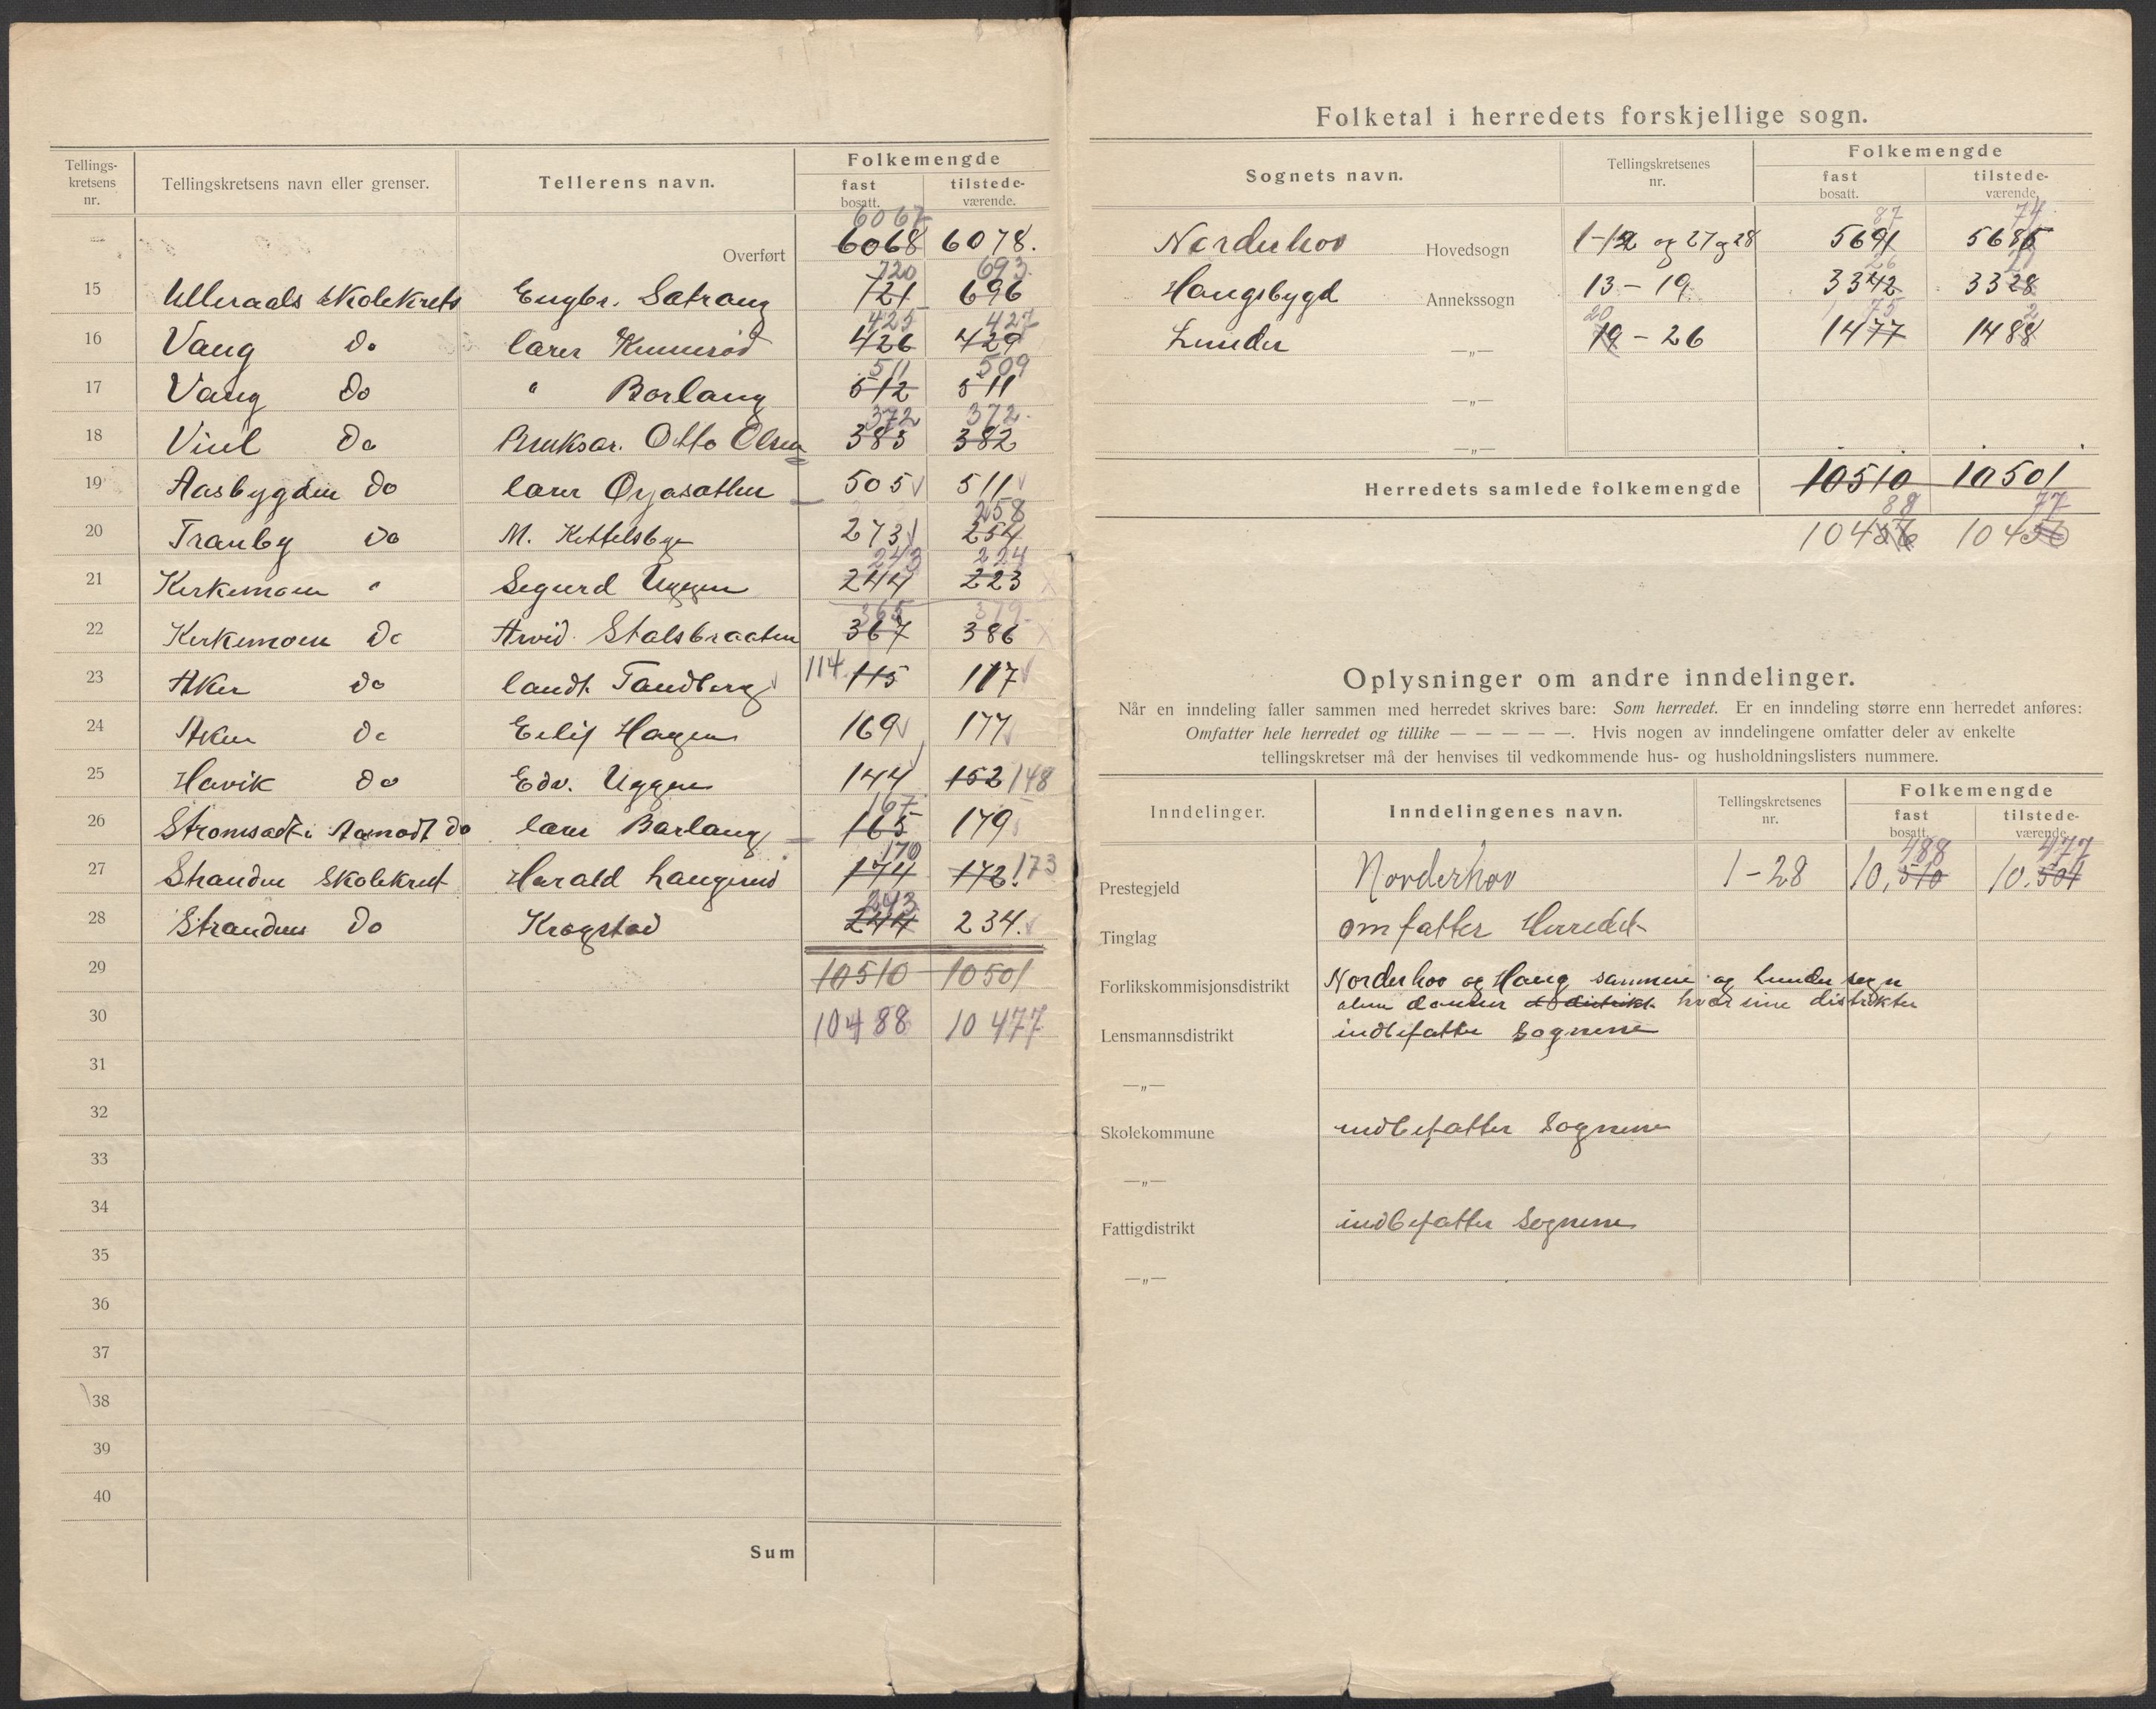 Tellings-
kretsens
nr.
Tellingskretsens navn eller grenser.
Tellerens navn.
Folkemengde
fast
bosatt.
tilstede-
værende.
6067
Overført 6068 6078.
720 693
15 Ulleraals Skolekrets Engbr. Sætrang 721 696
425 427
16 Vang do lærer 426 429
511 509
17 Vang do " Borlaug 512 511
372 372
18 Viul do Bruksar. Otto Olsen 383 382
19 Aasbygden do lærer 505 511
258
20 Tranby do M. Kittelsbye 273 254
243 224
21 Kirkemoen " Sigurd Uggen 244 223
365 379
22 Kirkemoen do Arvid Stalsbraaten 367 386
23 Aker do landh. Tandberg 114 115 117
24 Aker do Eilif Hagen 169 177
25 Havik do Edv. Uggen 144 152 148
167
26 Strømsødt i Aamodt do lærer Borlaug 165 179
170
27 Stranden Skolekret Harald Laugerud 174 172. 173
243
28 Strandens do Krogstad 244 234.
29 10510 10501
30 10488 10477
31
32
33
34
35
36
37
38
39
40
Sum
Folketal i herredets forskjellige sogn.
Sognets navn.
Tellingskretsenes
nr.
Folkemengde
fast
bosatt.
tilstede-
værende.
87 74
Norderhov Hovedsogn 1-12 og 27 og 28 5691 5685
26 21
Haugsbygd Annekssogn 13-19 3342 3328
20 75 2
Lunder —„— 19-26 1477 1488
—„—
—„—
Herredets samlede folkemengde 10510 10501
88 77
10456 10450
Oplysninger om andre inndelinger.
Når en inndeling faller sammen med herredet skrives bare: Som herredet. Er en inndeling større enn herredet anføres:
Omfatter hele herredet og tillike — — — — —. Hvis nogen av inndelingene omfatter deler av enkelte
tellingskretser må der henvises til vedkommende hus- og husholdningslisters nummere.
Inndelinger.
Inndelingenes navn.
Tellingskretsenes
nr.
Folkemengde
fast
bosatt.
tilstede-
værende.
488 477
Prestegjeld Norderhov 1-28 10,510 10.501
Tinglag omfatter Herredet
Forlikskommisjonsdistrikt Norderhov og Haug sammen og Lunder sogn
alene danner distrikt hver sine distrikter
Lensmannsdistrikt indbefatter Sognene
—„—
Skolekommune indbefatter Sognene
—„—
Fattigdistrikt indbefatter Sognene
—„—